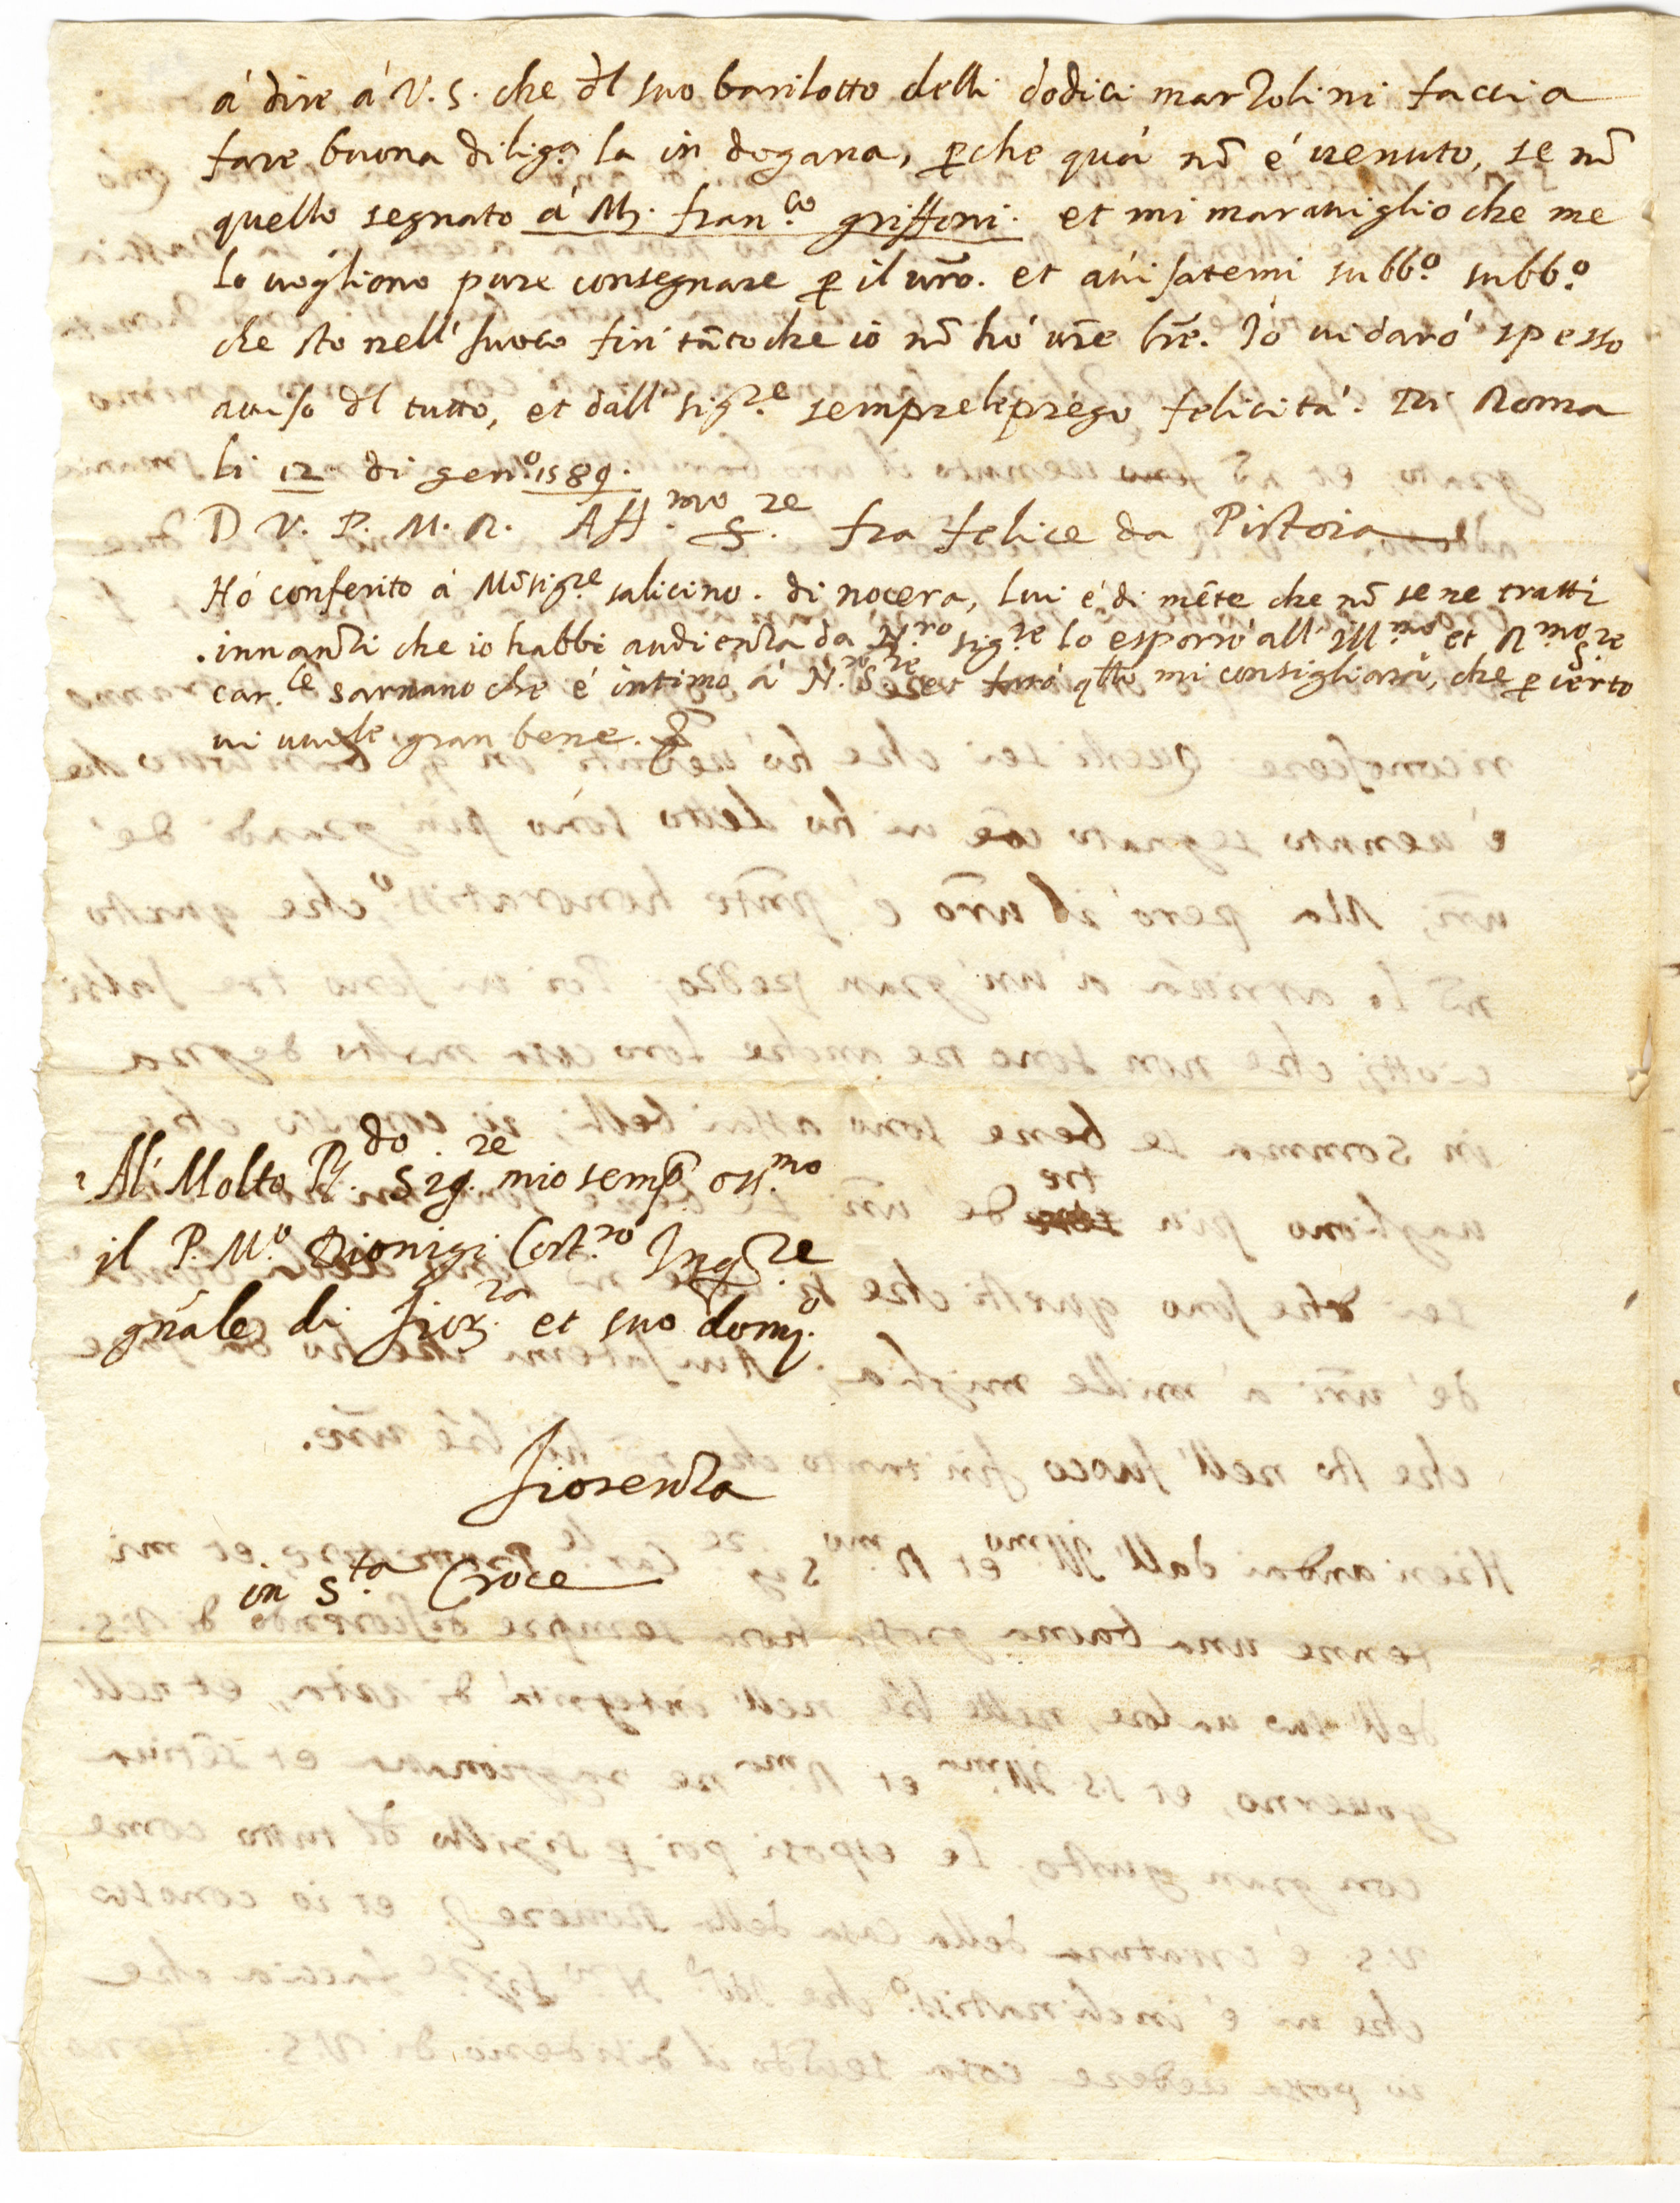 á dire á V. S. che dl suo barilotto delli dodici marzolini faccia
fare buona dilig.a la in dogana, p che quá nõ é uenuto, se nõ
quello segnato á M. fran.co griffoni. et mi marauiglio che me
lo uogliono pure consegnare p il uro. et auisatemi subb.o subb.o
che sto nell' fuoco fin' tãto che io nõ hó ure lre. Io ui daró spesso
auiso dl tutto, et dall' sig.re sempre le prego felicitá. Di Roma
li 12 di gen.o 1589.
D V. P. M. R. Aff.mo S.re fra felice da Pistoia
Hó conferito á Mõsig.re salicino. di nocera, lui é di mẽte che nõ se ne tratti
innanzi che io habbi audienza da N.ro sig.re lo esporró all' Ill.mo et R.mo S.re
car.le sarnano che é intimo á N.ro S.re et faró qllo mi consigliará, che p certo
ui uuole gran bene.
Al Molto R.do Sig.re mio semp oss.mo
il P. M.o Dionigi Cost.ro Inq.re
gñale di fior.za et suo domi.o
fiorenza
in S.ta Croce